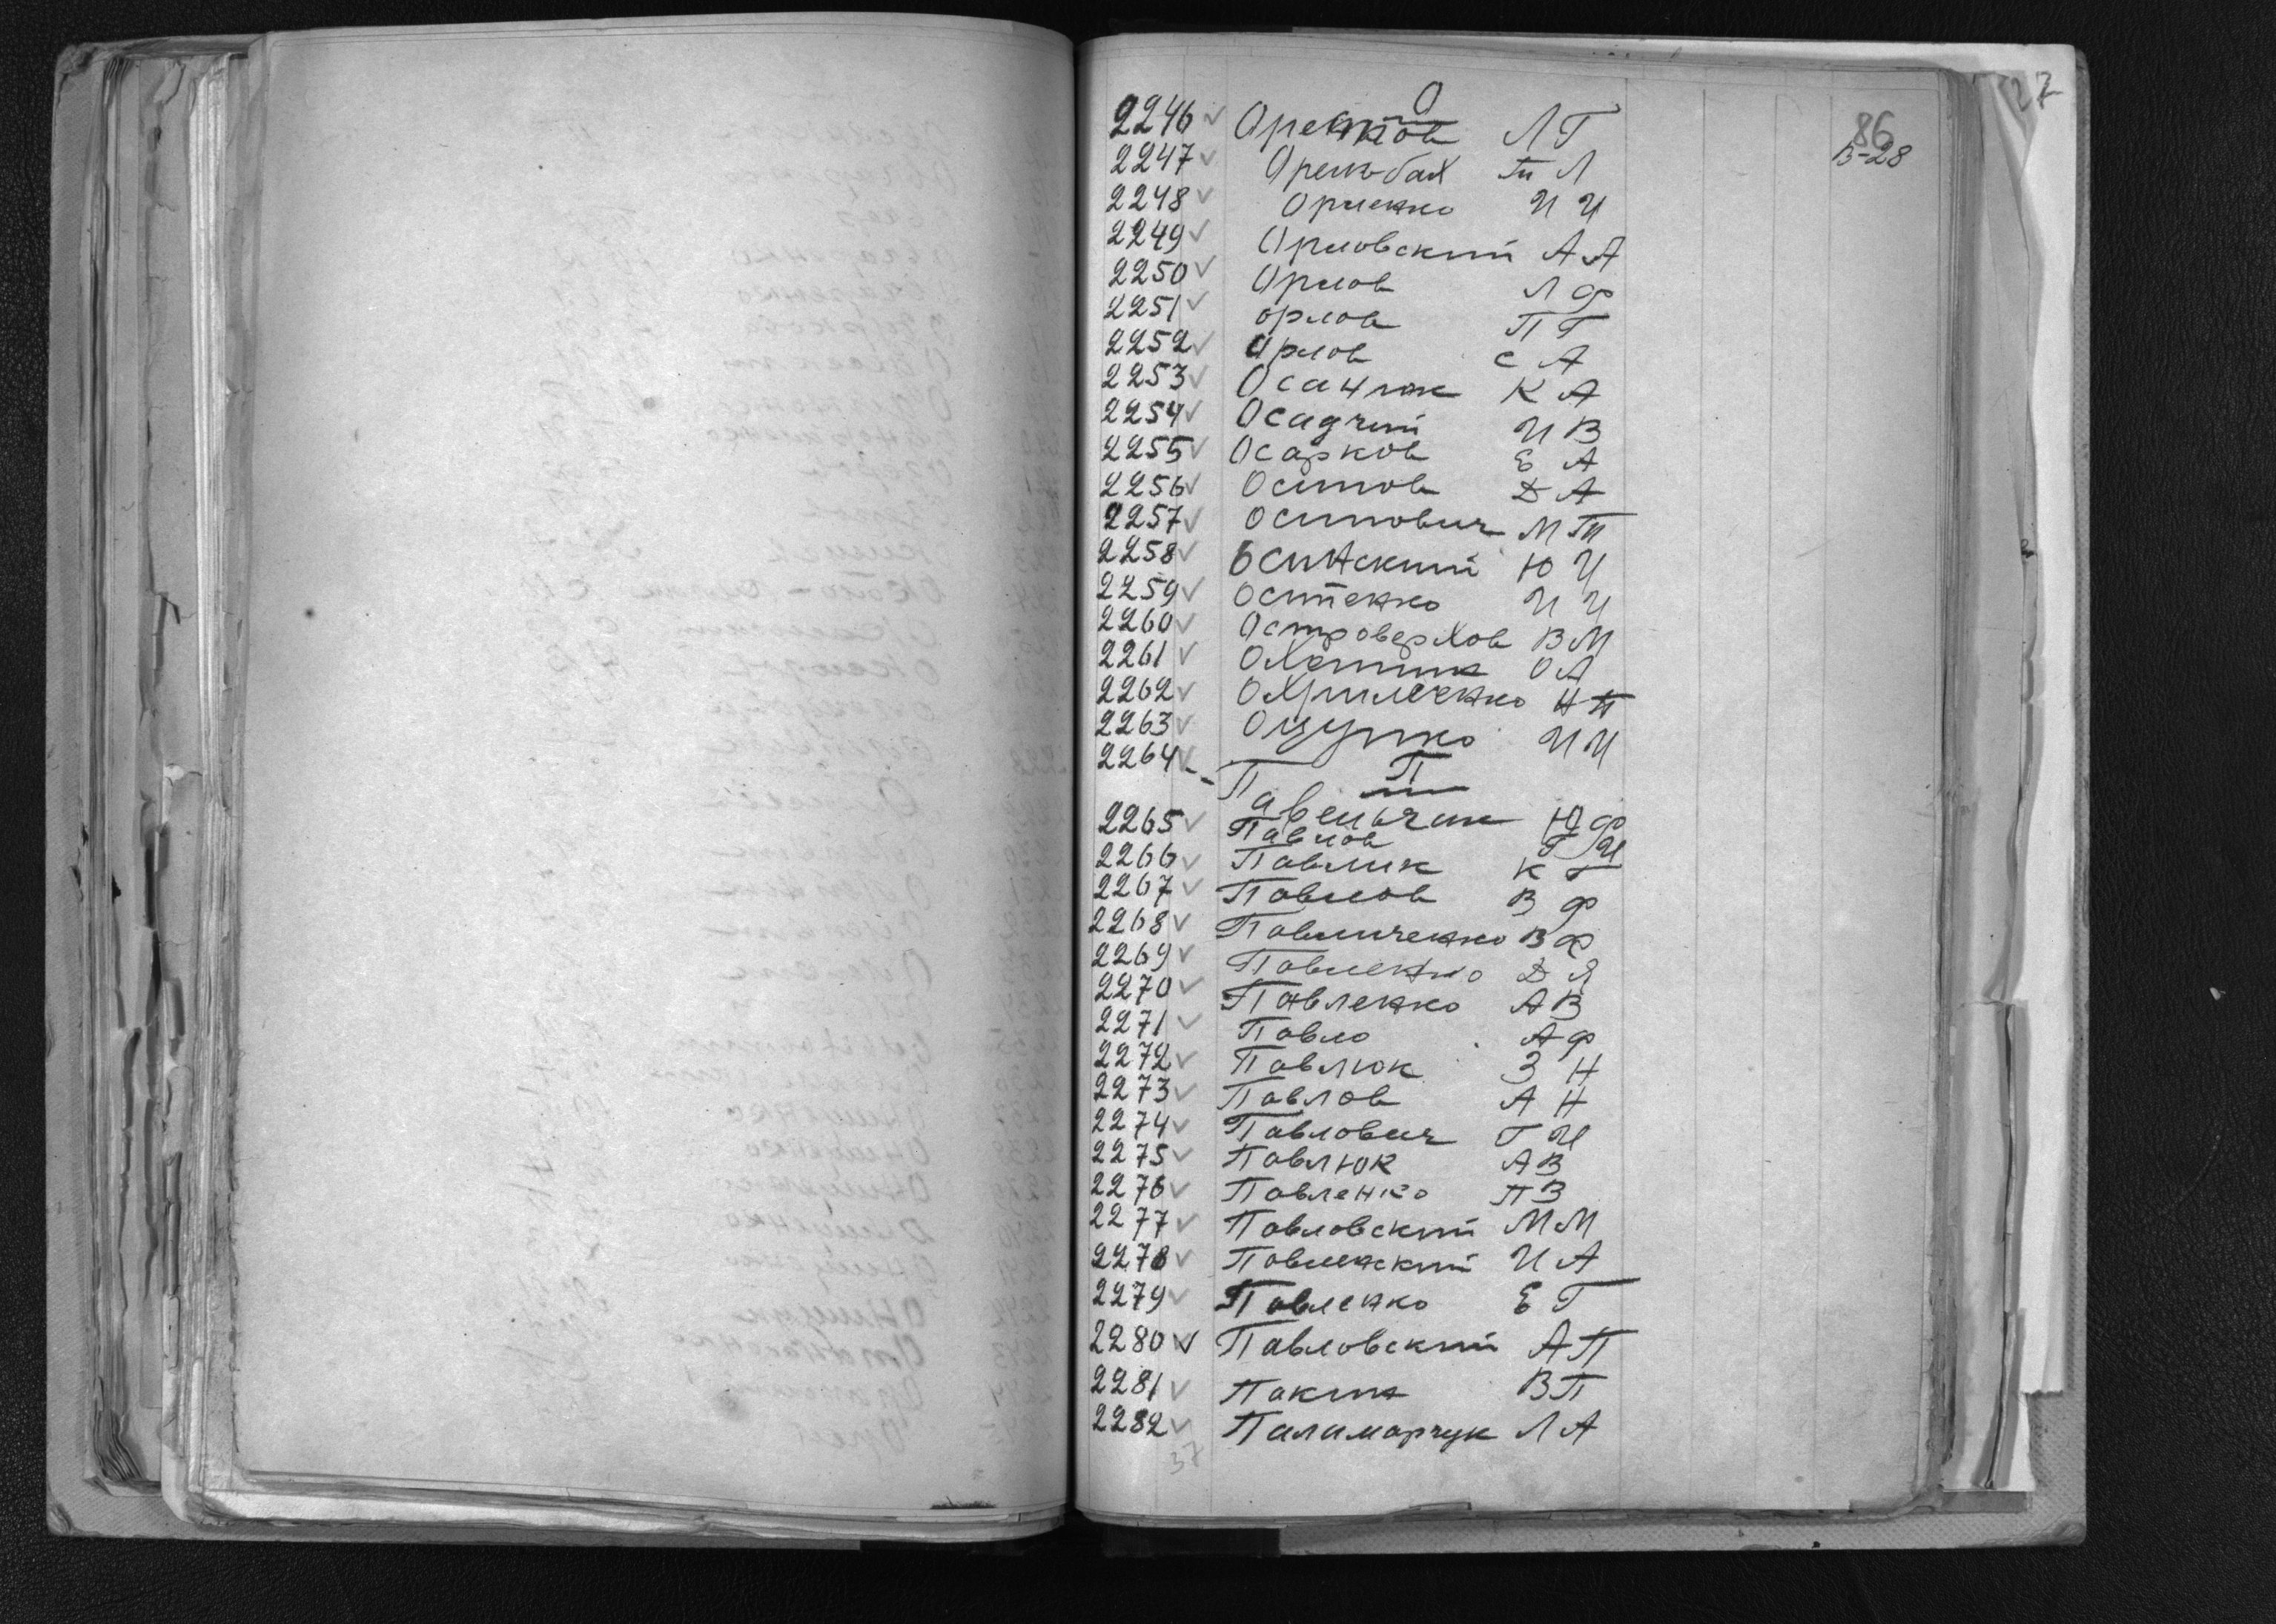 27
86
В-28
О
2246 Оре Л Г
2247 бах Л
2248 Орленко И И
2249 Орловский А А
2250 Орлов Л Ф
2251 орлов П Г
2252 Орлов С А
2253 К А
2254 Осадчий И В
2255 Осарков Е А
2256 Осипов Д А
2257 Осипович М
2258 Ю И
2259 Остенко И И
2260 Островерхов В М
2261 О А
2262 Охрименко Н П
2263 И И
2264
П
Ю Ф
2265 Павлов Г И
2266 Павлик К Г
2267 Павлов В Ф
2268 Павличенко В Ф
2269 Павленко Д Я
2270 Павленко А В
2271 Павло А Ф
2272 Павлюк З Н
2273 Павлов А Н
2274 Павлович Г И
2275 Павлюк А В
2276 Павленко П В
2277 Павловский М М
2278 И А
2279 Павленко Е Г
2280 Павловский А П
2281 В П
2282 Паламарчук Л А
37